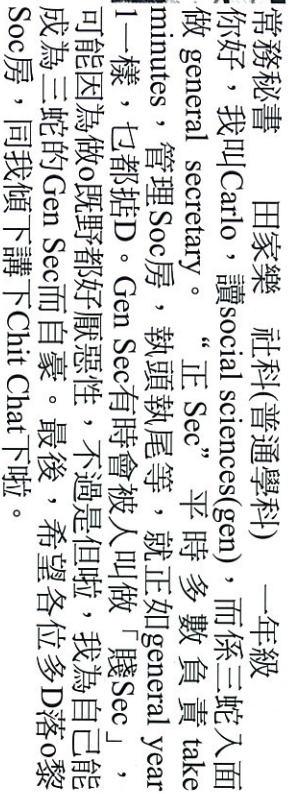 常務秘書　田家樂　社科(普通學科)　一年級
你好，我叫Carlo，讀social sciences(gen)，而係三蛇入面
做 general secretary。 “正 Sec” 平時多數負責 take
minutes，管理Soc房，執頭執尾等，就正如general year
1一樣，乜都掂D。Gen Sec有時會被人叫做「賤Sec」，
可能因為做o既野都好厭惡性，不過是但啦，我為自己能
成為三蛇的Gen Sec而自豪。最後，希望各位多D落o黎
Soc房，同我傾下講下Chit Chat下啦。